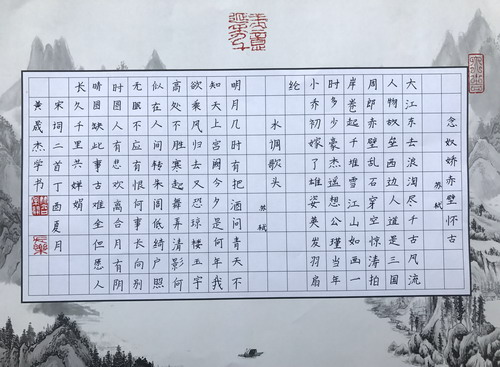 念奴娇赤壁怀古
苏轼
大江东去浪淘尽千古风流
人物故垒西边人道是三国
周郎赤壁乱石穿空惊涛拍
岸卷起千堆雪江山如画一
时多少豪杰遥想公瑾当年
小乔初嫁了雄姿英发羽扇
纶
水调歌头
苏轼
明月几时有把酒问青天不
知天上宫阙今夕是何年我
欲乘风归去又恐琼楼玉宇
高处不胜寒起舞弄清影何
似在人间转朱阁低绮户照
无眠不应有恨何事长向别
时圆人有悲欢离合月有阴
晴圆缺此事古难全但愿人
长久千里共婵娟
宋词二首丁酉夏月
黄晟杰学书